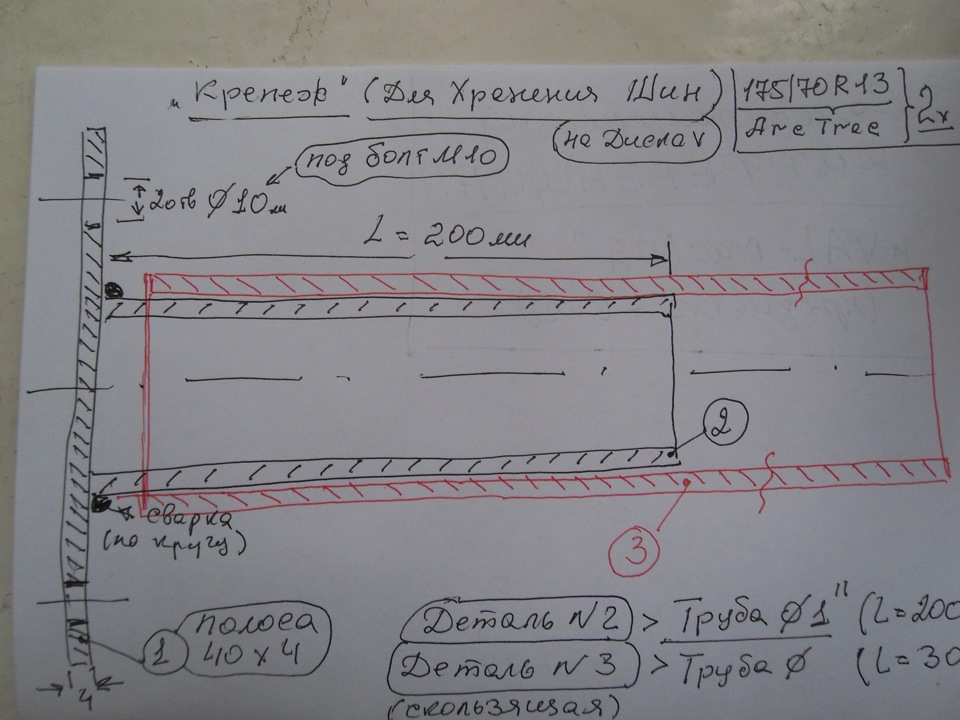 „Крепеж" (Для Хранения Шин) 175/70R13 2х
на Дисках
под болт М10
2отв Ø10мм
L = 200мм
2
Сварка
(по кругу)
3
1 полоса
40 х 4
4
Деталь N2 > Труба Ø1" (L=200
Деталь N3 > Труба Ø (L=30
(скользящая)